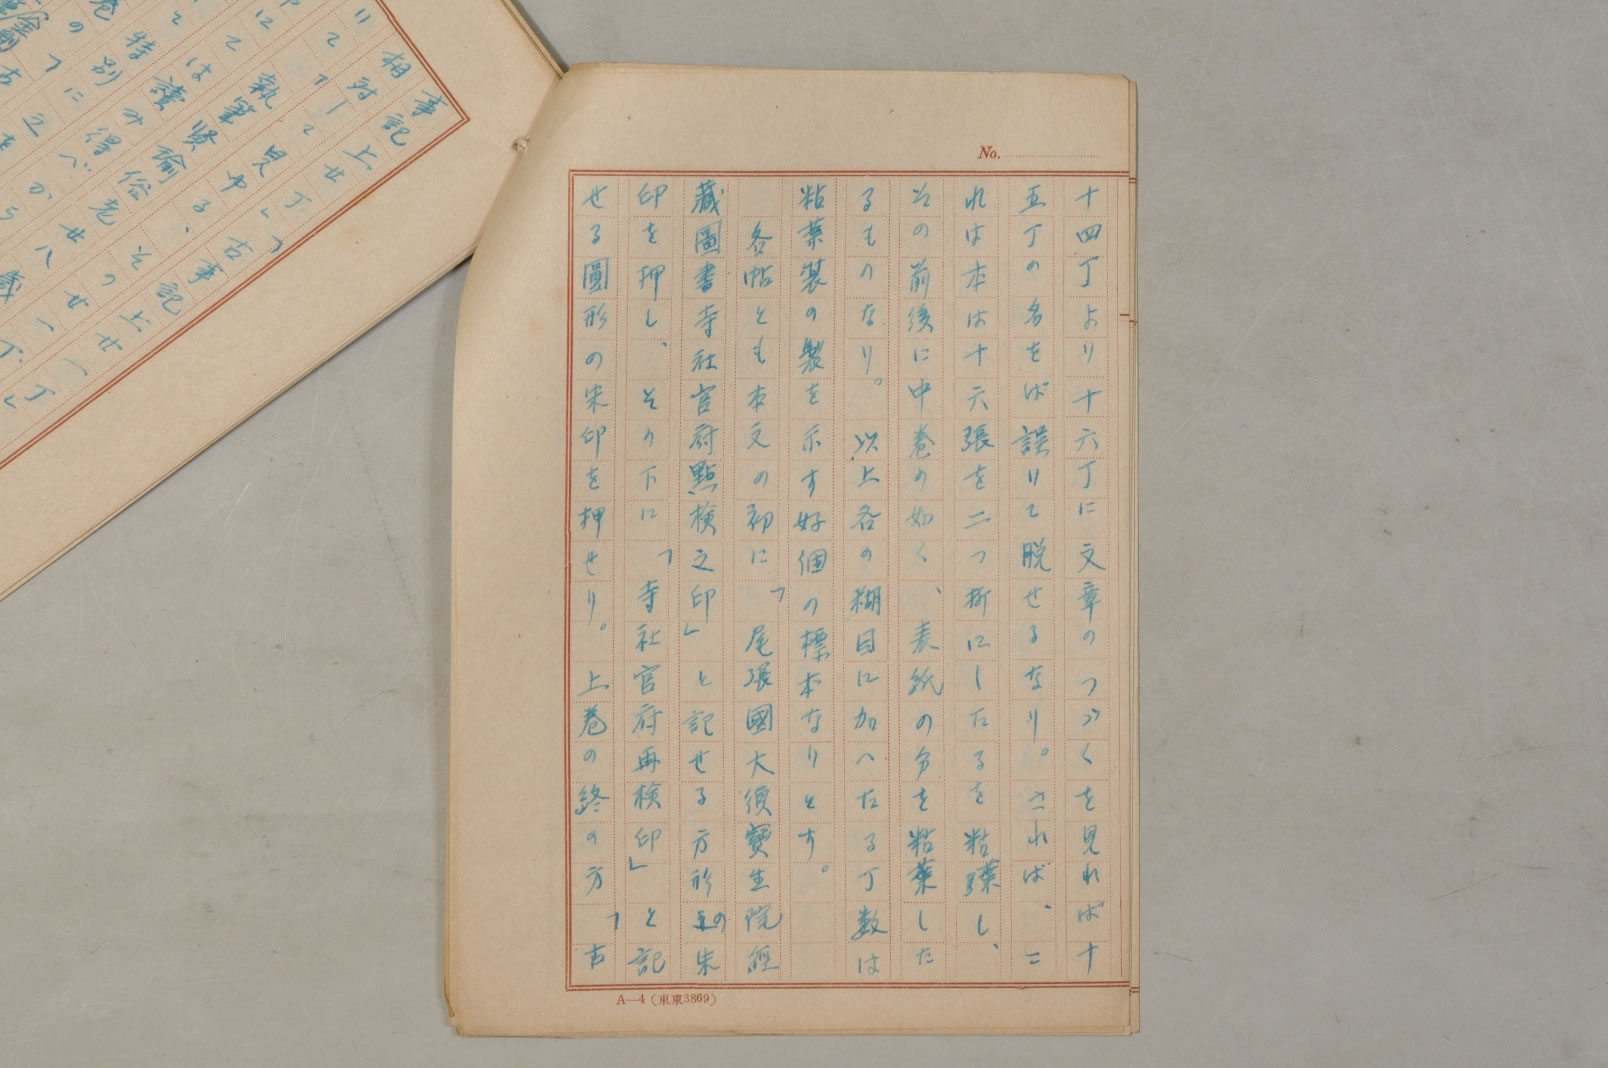 No.
十四丁より十六丁に文章のつゞくを見れば十
五丁の名をば誤りて脱せるなり。されば、こ
れは本は十六張を二つ折にしたるを粘葉し、
その前後に中巻の如く、表紙の分を粘葉した
るものなり。以上各の糊目に加へたる丁数は
粘葉装の製を示す好個の標本なりとす。
各帖とも本文の初に「尾張國大須寶生院經
藏圖書寺社官府點検之印」と記せる方形の朱
印を押し、その下に「寺社官府再検印」と記
せる圓形の朱印を押せり。上巻の終の方「古
A―4(東東3869)
事記上廿丁」「
相対して見ゆる、古事記上廿一丁」
にて執筆賢瑜俗老廿
ては讀み得べから
特別に